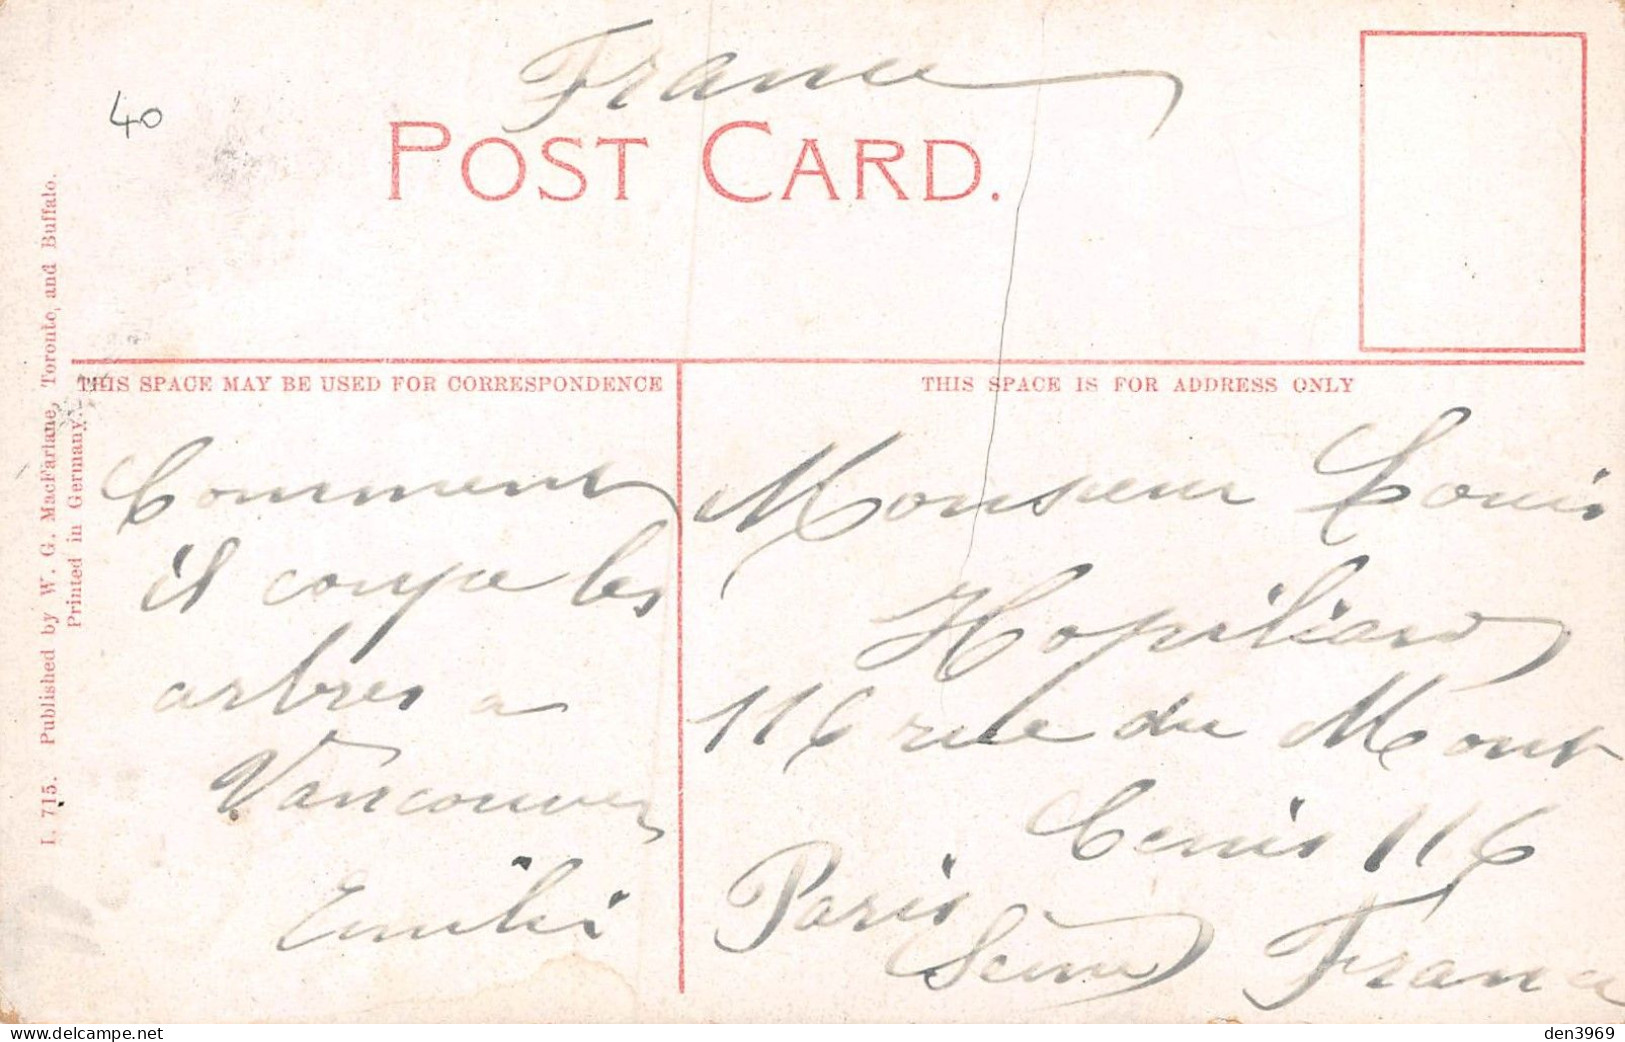 France
40
POST CARD.
I. 715. Published by W. G. MacFarlane, Toronto, and Buffalo.
Printed in Germany.
THIS SPACE MAY BE USED FOR CORRESPONDENCE
THIS SPACE IS FOR ADDRESS ONLY
Comment
il coupe les
arbres a
Vancouver
Monsieur Louis
116 rue du Mont
Cenis 116
Paris
Seine France
www.delcampe.net
den3969